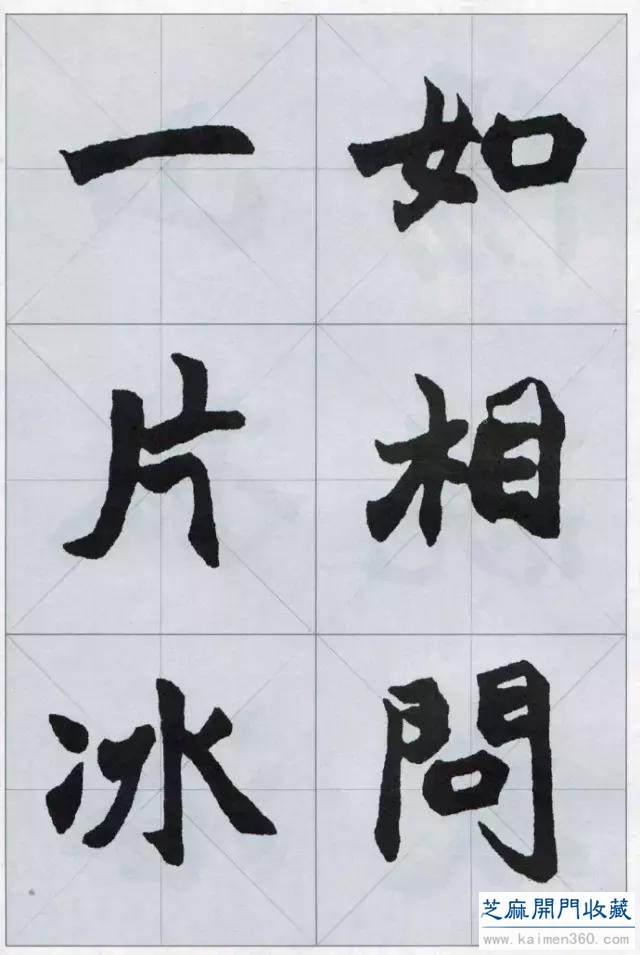 如相問
一片冰
芝麻開門收藏
www.kaimen360.com